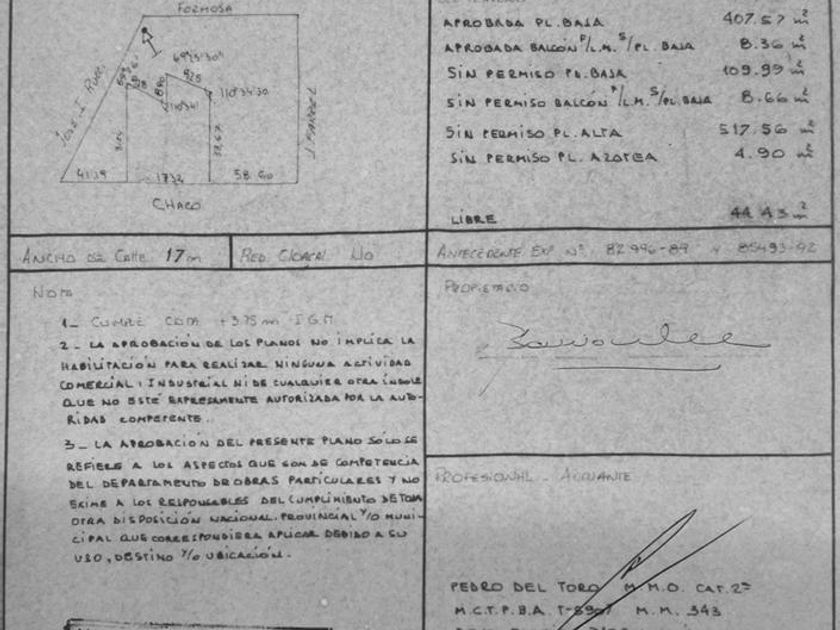 FORMOSA
69°25'30"
9.25
110°34'30
JOSE I. RUCCI
J. FARREL
41.39
17.32
58.60
CHACO
APROBADA PL. BAJA 407.57 m²
APROBADA BALCÓN P/L.M. S/PL. BAJA 8.36 m²
SIN PERMISO PL. BAJA 109.99 m²
SIN PERMISO BALCÓN P/L.M. S/PL. BAJA 8.66 m²
SIN PERMISO PL. ALTA 517.56 m²
SIN PERMISO PL. AZOTEA 4.90 m²
LIBRE 44.43 m²
ANCHO DE CALLE 17m
RED. CLOACAL NO
ANTECEDENTE EXP. Nº 82996-89 y 85493-92
NOTA
1_ CUMPLE COTA +3.75 m I.G.M.
2_ LA APROBACIÓN DE LOS PLANOS NO IMPLICA LA
HABILITACIÓN PARA REALIZAR NINGUNA ACTIVIDAD
COMERCIAL, INDUSTRIAL NI DE CUALQUIER OTRA ÍNDOLE
QUE NO ESTÉ EXPRESAMENTE AUTORIZADA POR LA AUTO-
RIDAD COMPETENTE.
3_ LA APROBACIÓN DEL PRESENTE PLANO SÓLO SE
REFIERE A LOS ASPECTOS QUE SON DE COMPETENCIA
DEL DEPARTAMENTO DE OBRAS PARTICULARES Y NO
EXIME A LOS RESPONSABLES DEL CUMPLIMIENTO DE TODA
OTRA DISPOSICIÓN NACIONAL, PROVINCIAL Y/O MUNI-
CIPAL QUE CORRESPONDIERA APLICAR DEBIDO A SU
USO, DESTINO Y/O UBICACIÓN.
PROPIETARIO
PROFESIONAL - ACTUANTE
PEDRO DEL TORO M.M.O. CAT. 2ª
M.C.T.P.B.A. T-8907 M.M. 343